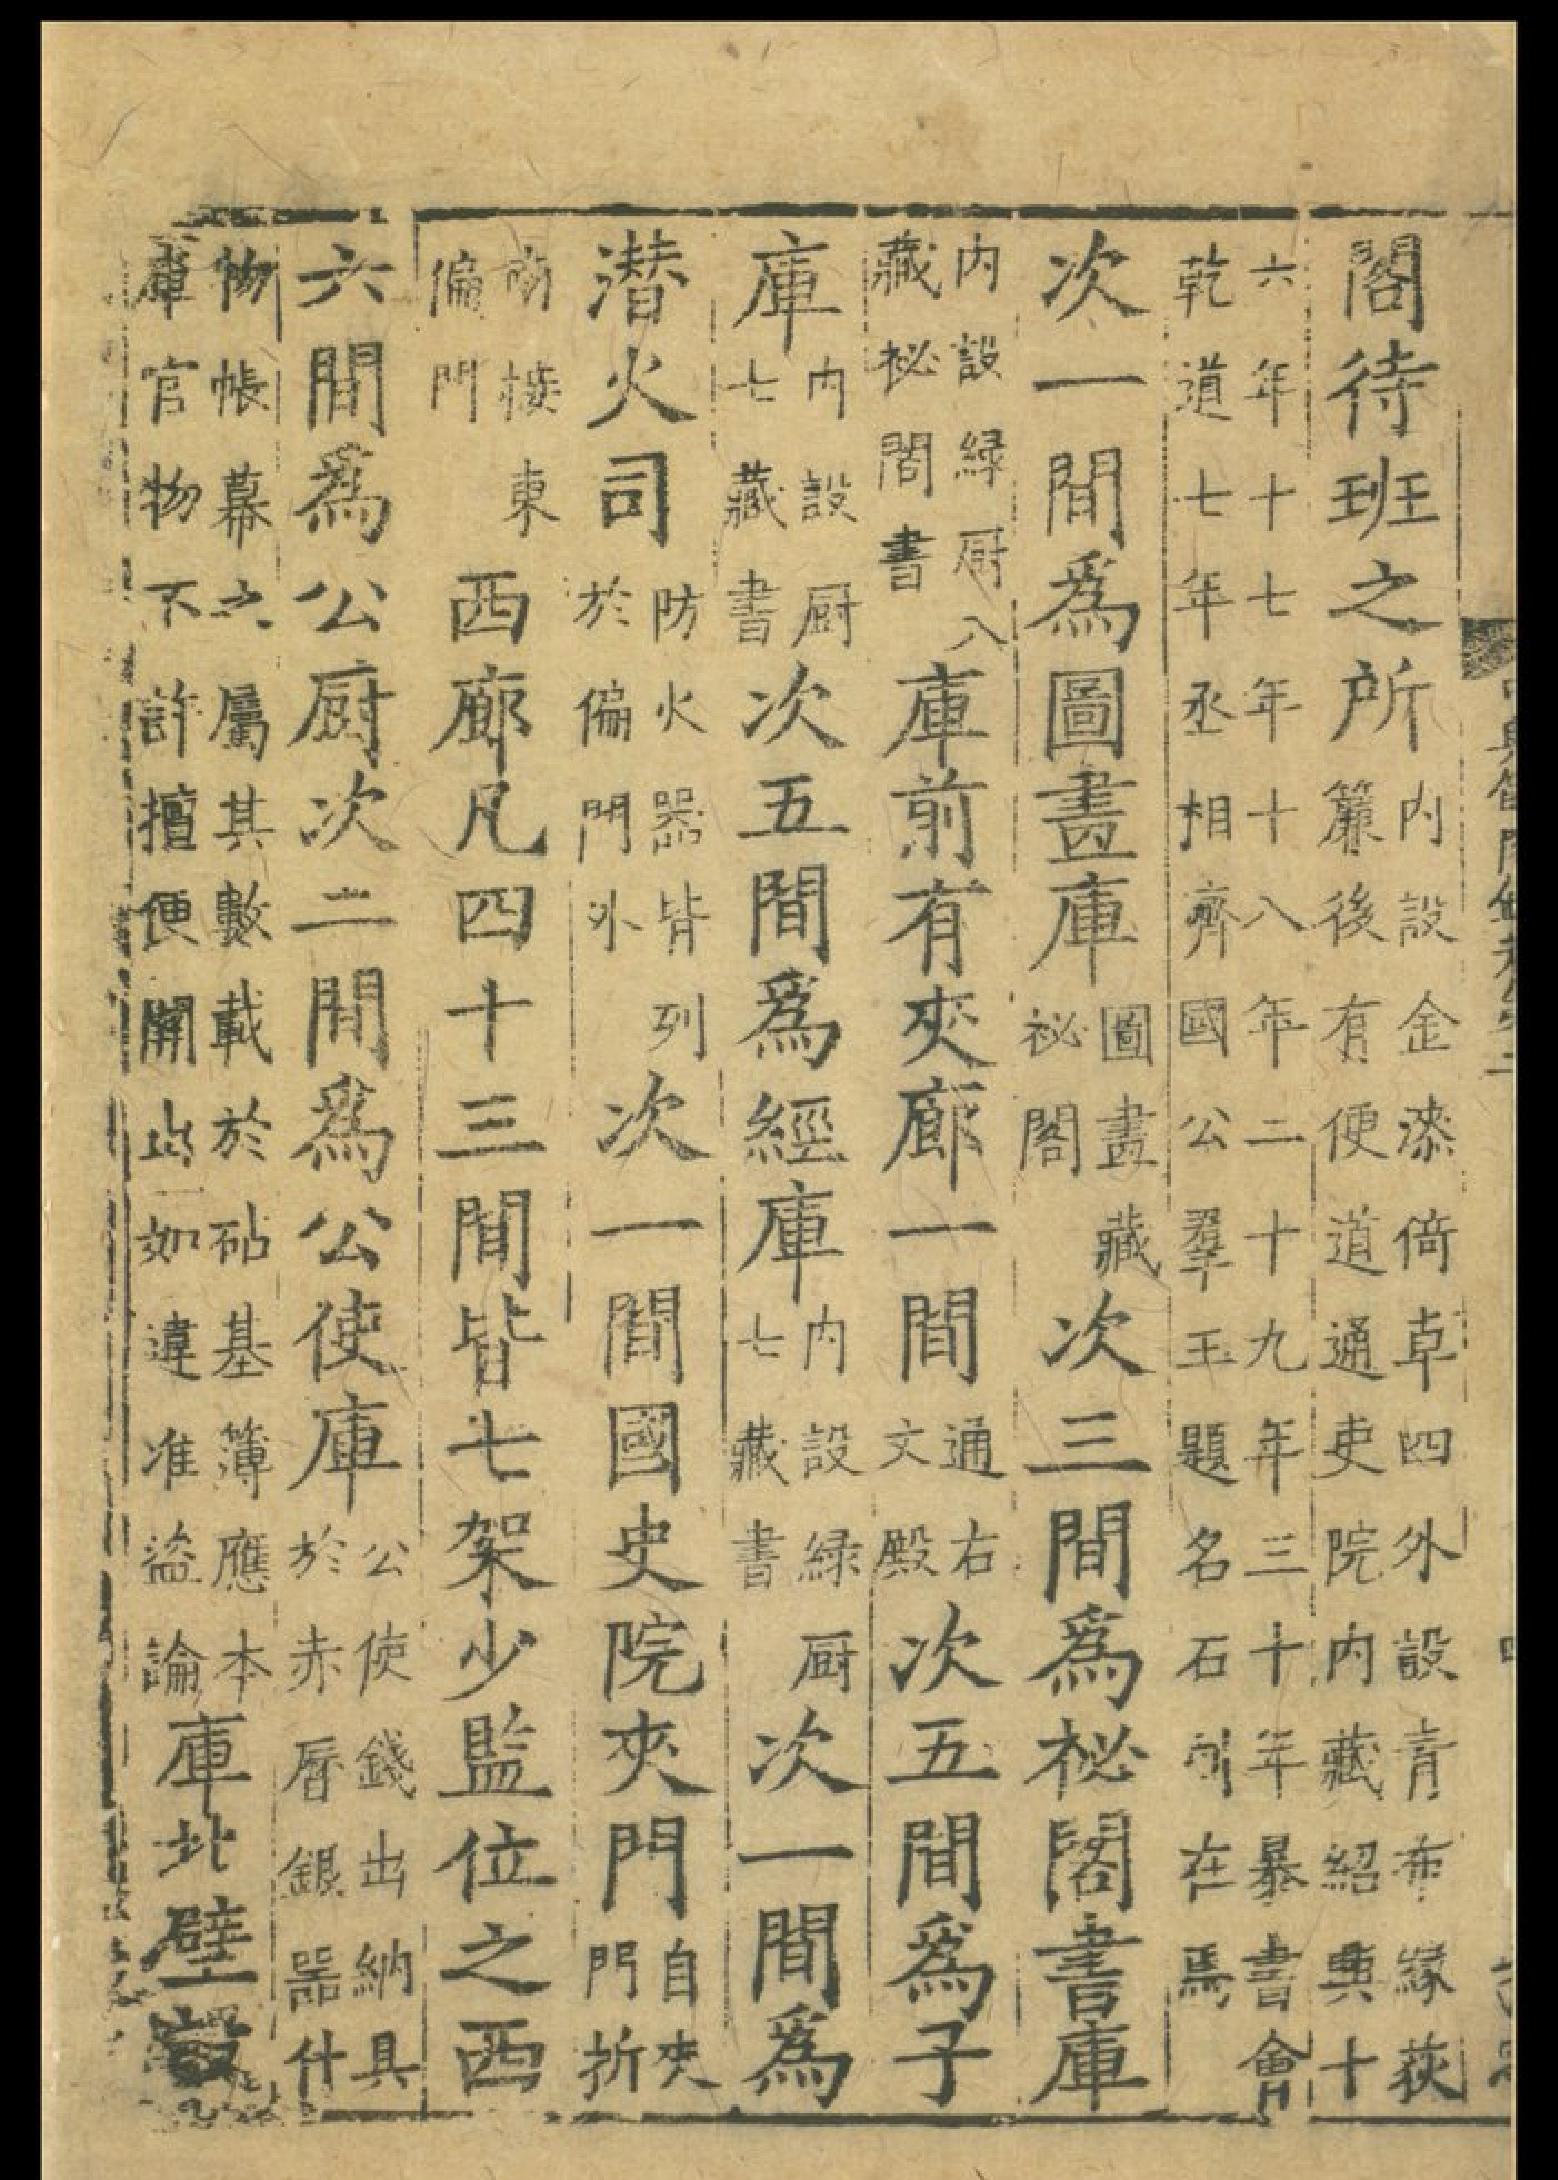 閣待班之所内設金漆倚卓四外設青布緣荻簾後有便道通史院内藏紹興十
六年十七年十八年二十九年三十年暴書會乾道七年丞相齊國公羣玉題名石刻在焉
次一間爲圖畫庫圖畫藏祕閣次三間爲祕閣書庫
内設緑厨八藏祕閣書庫前有夾廊一間通右文殿次五間爲子
庫内設厨七藏書次五間爲經庫内設緑厨七藏書次一間爲
潜火司防火器皆列於偏門外次一間國史院夾門自夾門折
南接東偏門西廊凡四十三間皆七架少監位之西
六間爲公厨次二間爲公使庫公使錢出納具於赤曆銀器什
物帳幕之屬其數載於砧基簿應本庫官物不許擅便開出如違准盜論庫北壁